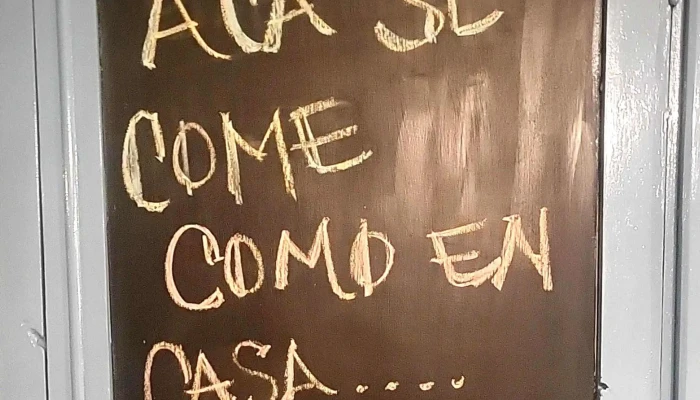 ACA SE
COME
COMO EN
CASA....